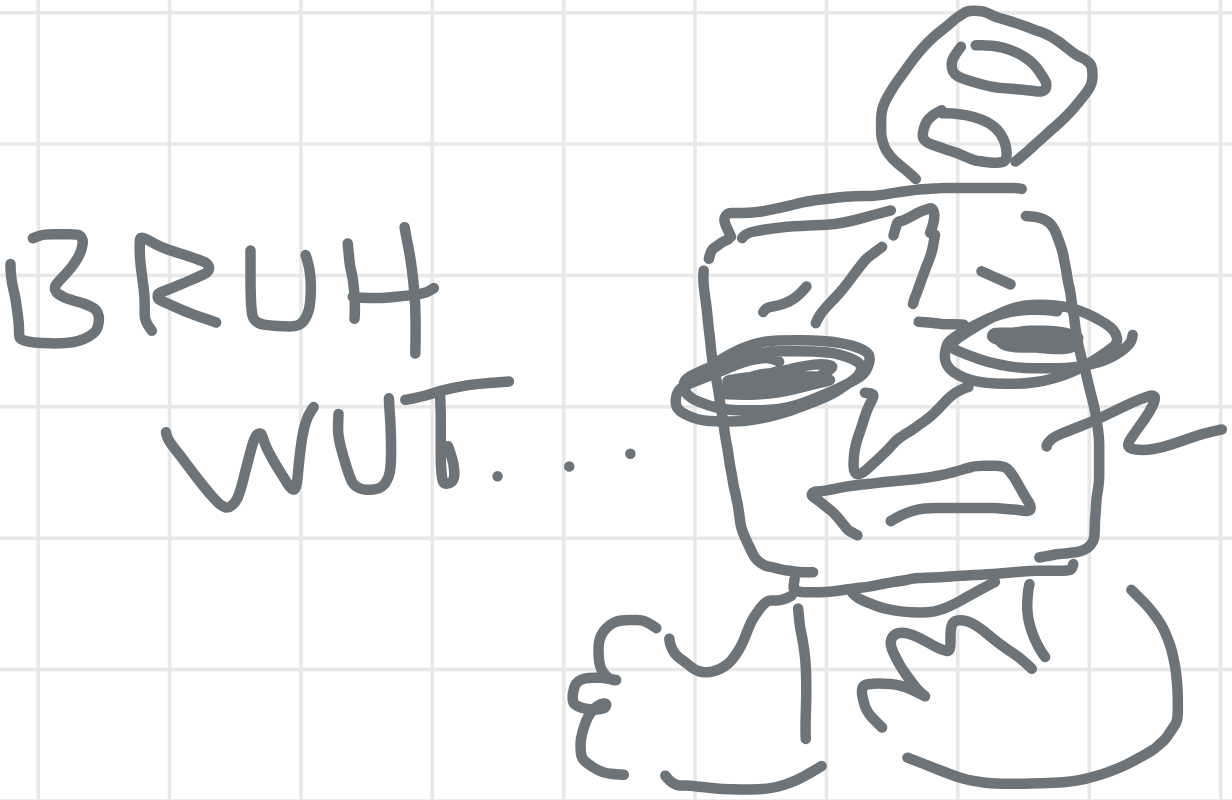 BRUH
WUT....